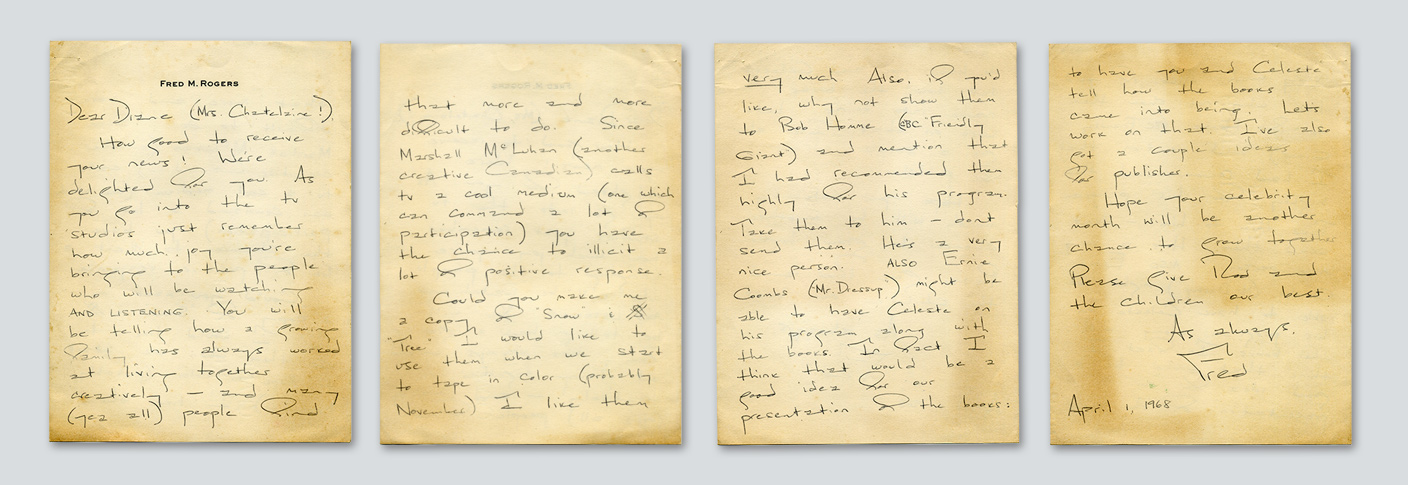 FRED M. ROGERS
Dear Diane (Mrs. Chatelaine!),
How good to receive
your news! We're
delighted for you. As
you go into the tv
studios just remember
how much joy you're
bringing to the people
who will be watching
AND LISTENING. You will
be telling how a growing
family has always worked
at living together
creatively — and many
(yea all) people find
that more and more
difficult to do. Since
Marshall McLuhan (another
creative Canadian) calls
tv a cool medium (one which
can command a lot of
participation) you have
the chance to illicit a
lot of positive response.
Could you make me
a copy of "Snow" &
"Tree" I would like to
use them when we start
to tape in color (probably
November) I like them
very much Also, if you'd
like, why not show them
to Bob Homme (CBC Friendly
Giant) and mention that
I had recommended them
highly for his program.
Take them to him — dont
send them. He's a very
nice person. ALSO Ernie
Coombs ("Mr. Dressup") might be
able to have Celeste on
his program along with
the books. In fact I
think that would be a
good idea for our
presentation of the books:
to have you and Celeste
tell how the books
came into being. Let's
work on that. I've also
got a couple ideas
for publisher.
Hope your celebrity
month will be another
chance to grow together
Please give Rod and
the children our best.
As always,
Fred
April 1, 1968